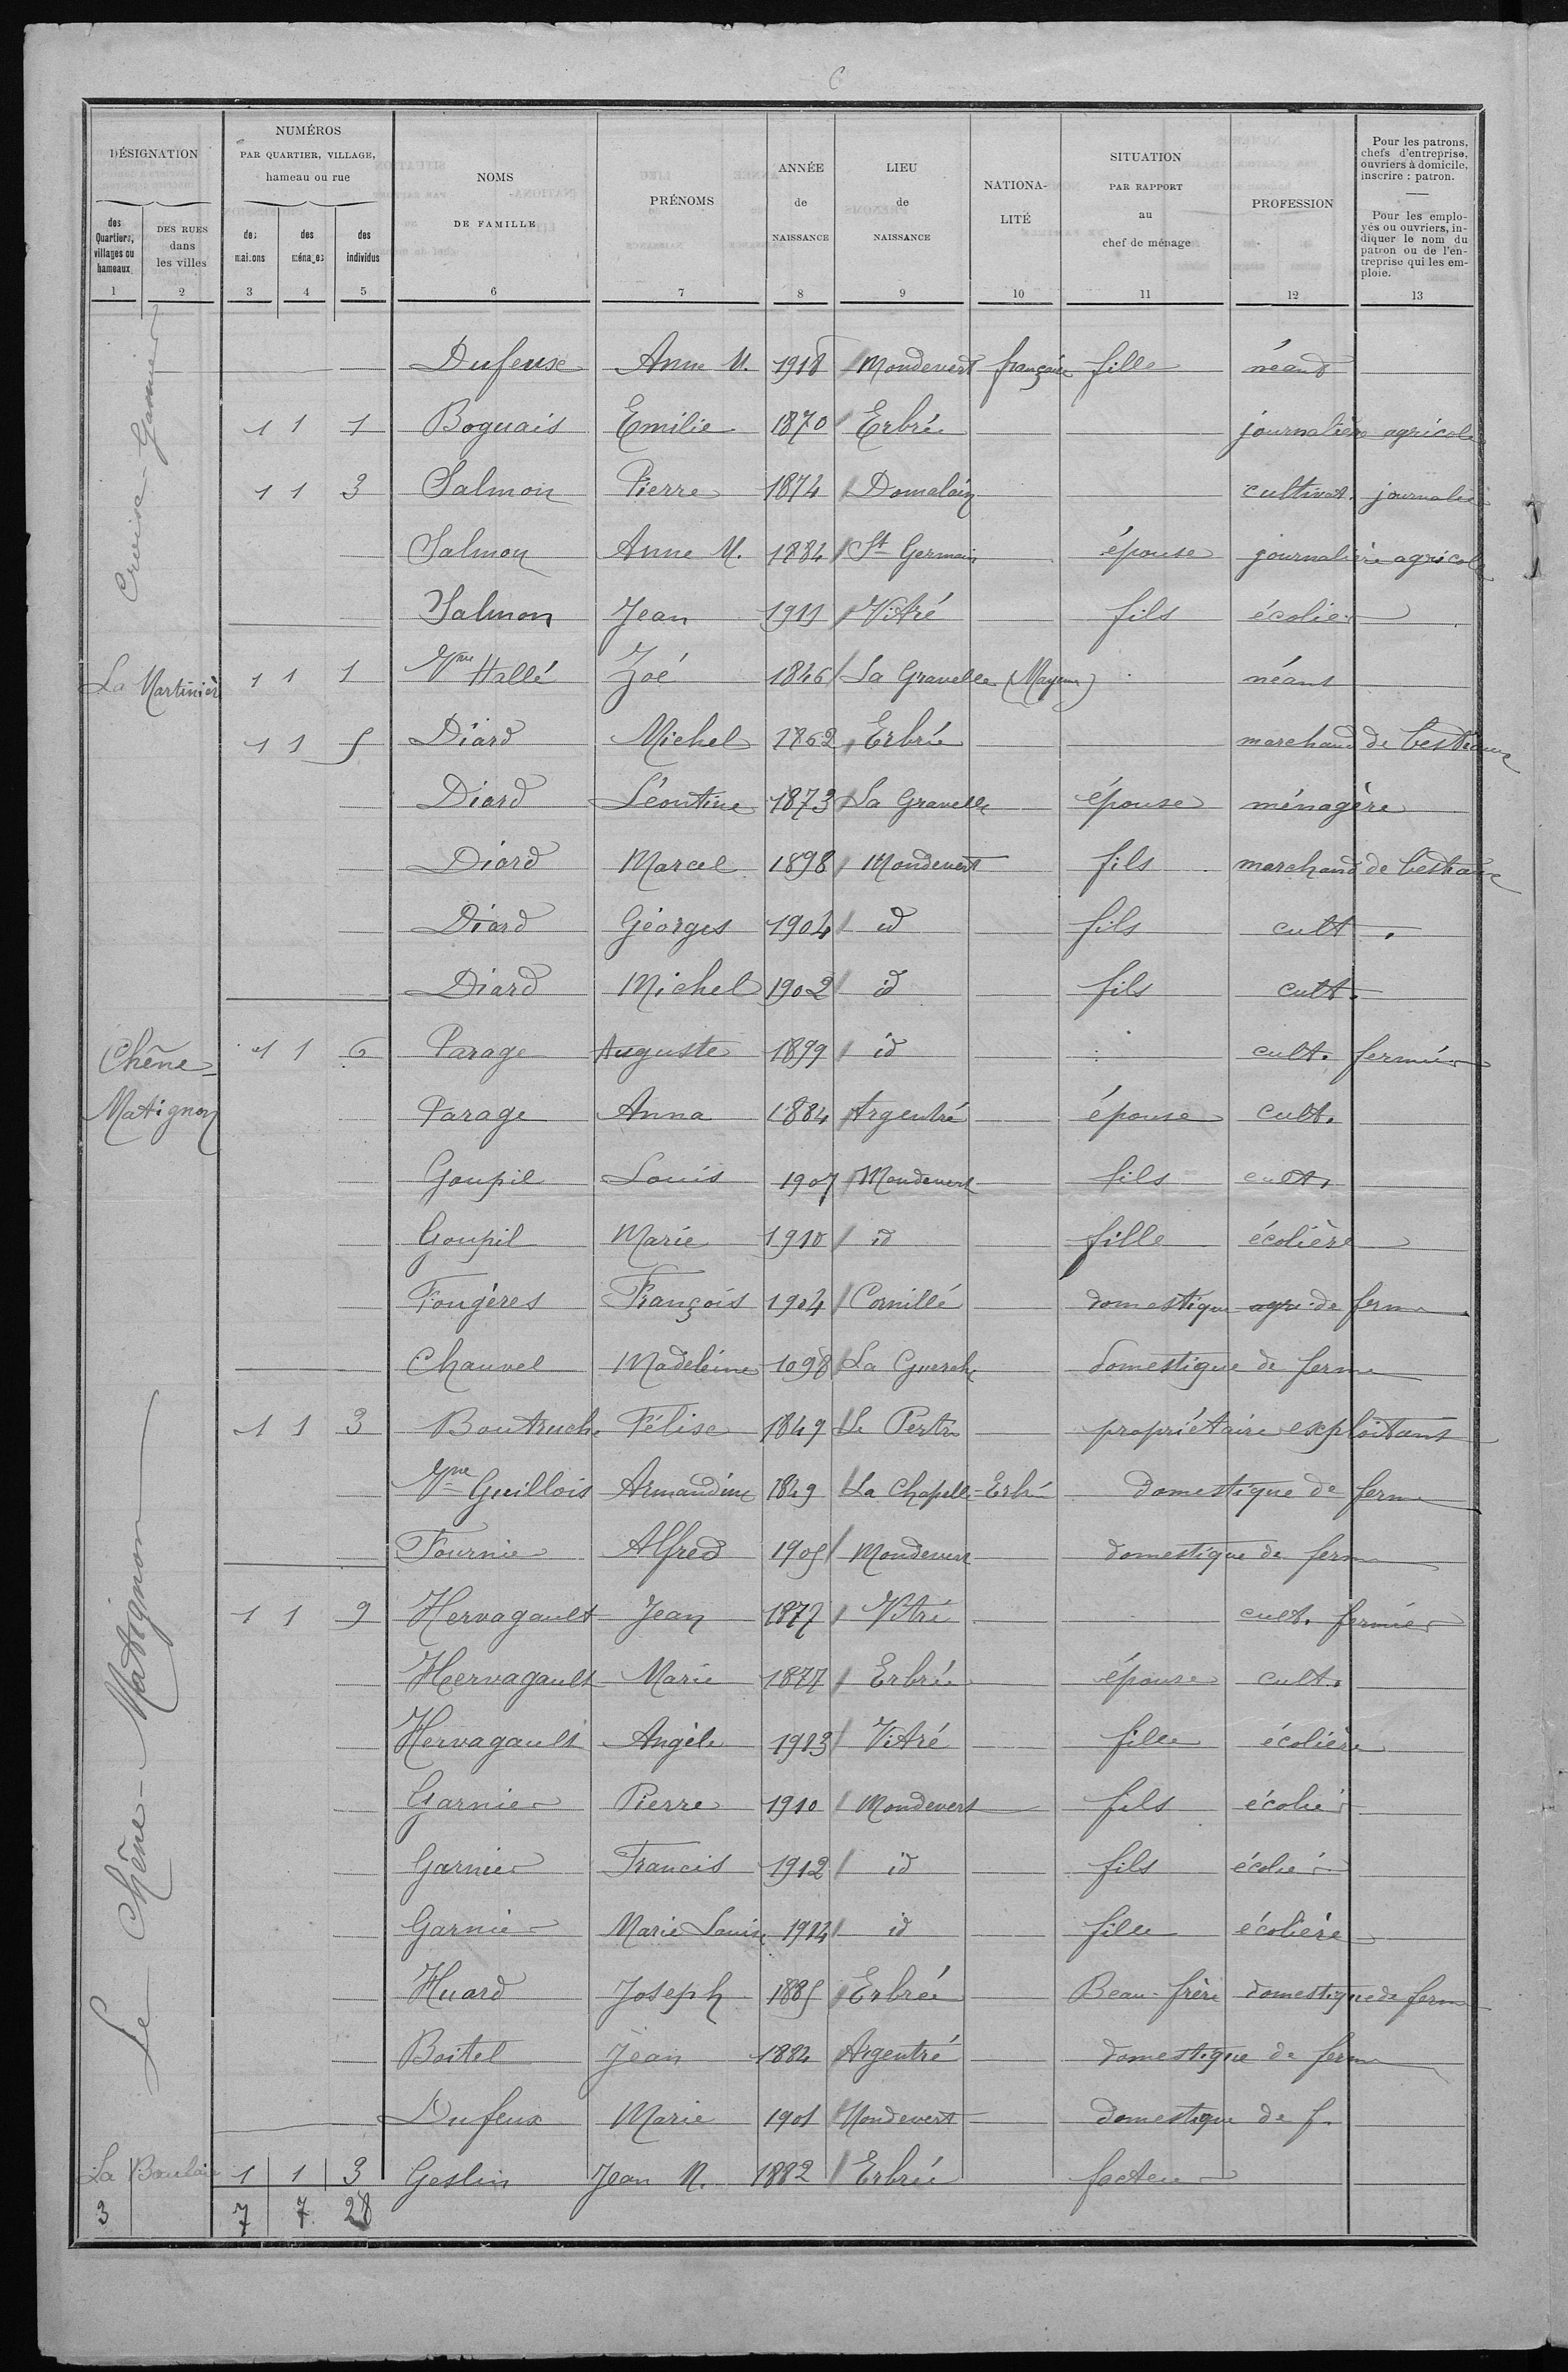 C
DÉSIGNATION
NUMÉROS
PAR QUARTIER, VILLAGE,
hameau ou rue
NOMS
DE FAMILLE
PRÉNOMS
ANNÉE
de
NAISSANCE
LIEU
de
NAISSANCE
NATIONA-
LITÉ
SITUATION
PAR RAPPORT
au
chef de ménage
PROFESSION
Pour les patrons,
chefs d'entreprise,
ouvriers à domicile,
inscrire : patron.
Pour les emplo-
yés ou ouvriers, in-
diquer le nom du
patron ou de l'en-
treprise qui les em-
ploie.
des
Quartiers,
villages ou
hameaux
DES RUES
dans
les villes
des
maisons
des
ménages
des
individus
1 2 3 4 5 6 7 8 9 10 11 12 13
Garnier
Dufeux Anne M. 1918 Mondevert française fille néant
1 1 1 Boguais Emilie 1870 Erbrée journalière agricole
1 1 3 Salmon Pierre 1874 Domalain cultivat. journalier
Salmon Anne M. 1884 St Germain épouse journalière agricole
Salmon Jean 1911 Vitré fils écolier
La Martinièr 1 1 1 Vve Hallé Zoé 1846 La Gravelle (Mayenne) néant
1 1 5 Diard Michel 1862 Erbrée marchand de bestiaux
Diard Léontine 1873 La Gravelle épouse ménagère
Diard Marcel 1898 Mondevert fils marchand de bestiaux
Diard Géorges 1904 id fils cult.
Diard Michel 1902 id fils cult.
Chêne- 1 1 6 Parage Auguste 1899 id cult. fermier
Matignon Parage Anna 1884 Argentré épouse cult.
Goupil Louis 1907 Mondevert fils cult.
Goupil Marie 1910 id fille écolière
Fougères François 1904 Cornillé domestique agri. de ferme
Chauvel Madeleine 1898 La Guerche domestique de ferme
Le Chêne-Matignon
1 1 3 Boutruche Félise 1849 Le Pertre propriétaire exploitant
Vve Guillois Armandine 1849 La Chapelle-Erbrée domestique de ferme
Fournier Alfred 1905 Mondevert domestique de ferme
1 1 9 Hervagault Jean 1877 Vitré cult. fermier
Hervagault Marie 1877 Erbrée épouse cult.
Hervagault Angèle 1913 Vitré fille écolière
Garnier Pierre 1910 Mondevert fils écolier
Garnier Francis 1912 id fils écolier
Garnier Marie Louise 1914 id fille écolière
Huard Joseph 1885 Erbrée Beau-frère domestique de ferme
Boitel Jean 1884 Argentré domestique de ferme
Dufeux Marie 1901 Mondevert domestique de f.
La 1 1 3 Geslin Jean M. 1882 Erbrée facteur
3 7 7 28